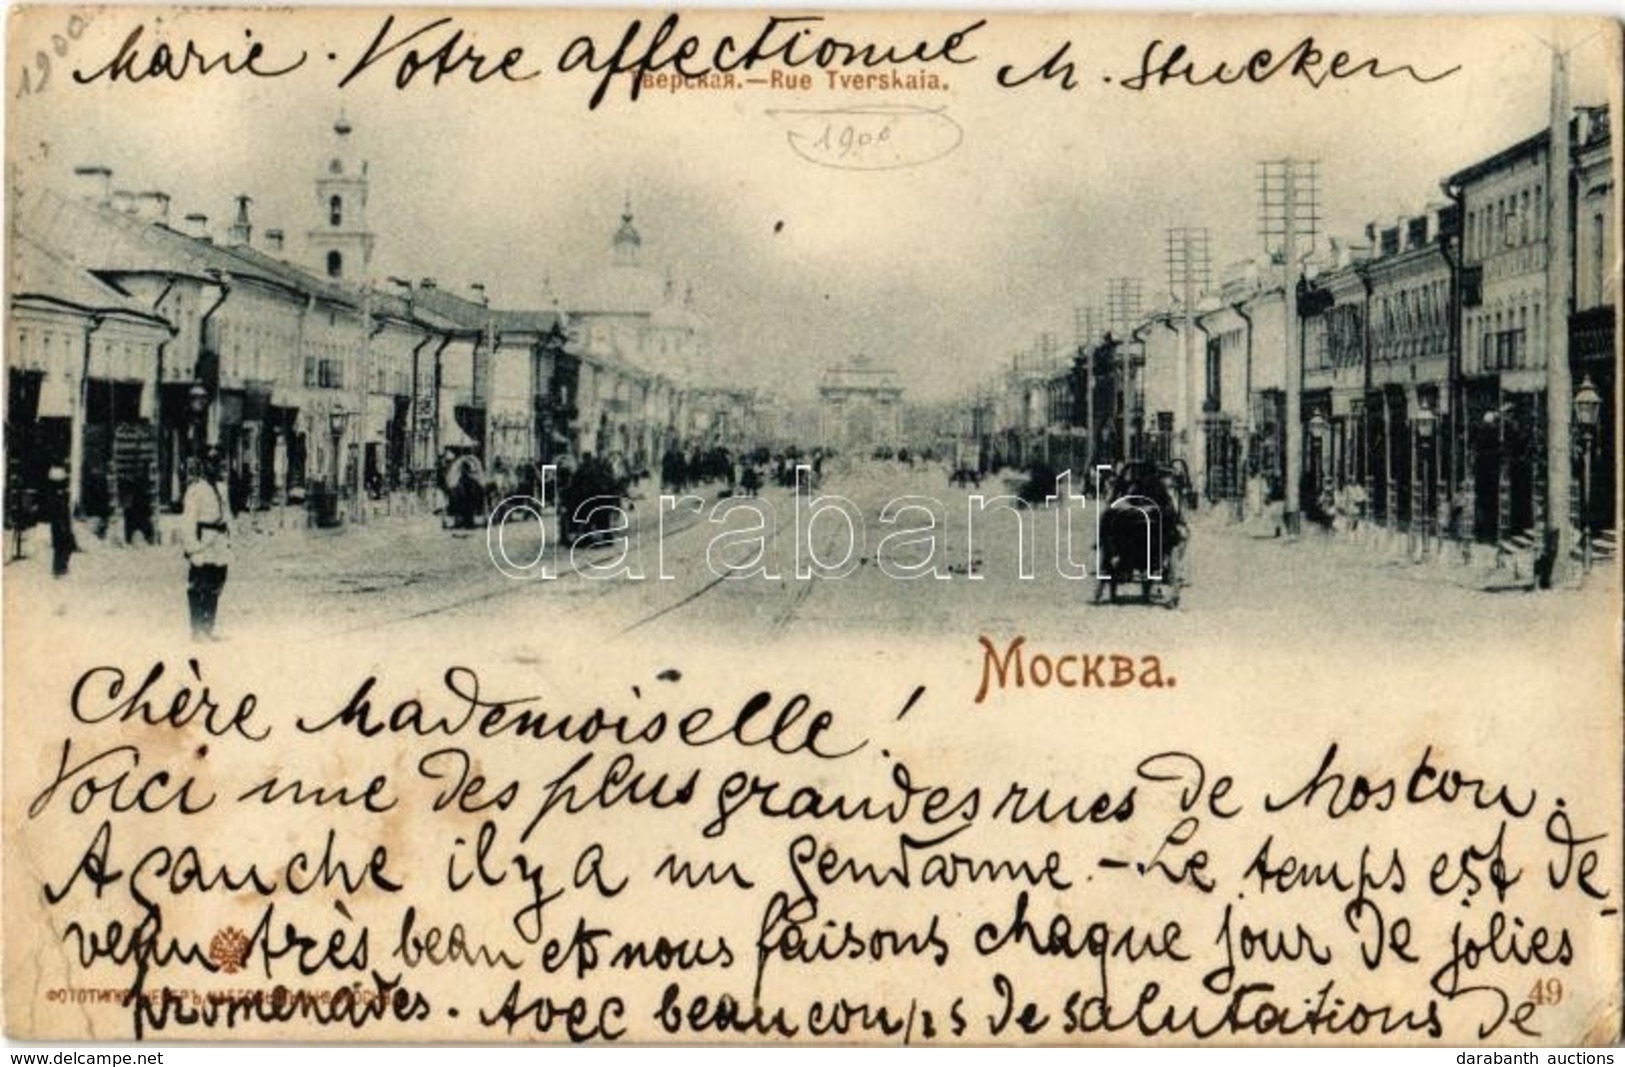 1900
Marie. Votre affectionné M. Stucken
Тверская.—Rue Tverskaia.
1900
darabanth
Москва.
Chère Mademoiselle!
Voici une des plus grandes rues de Moscou.
A gauche il y a un gendarme. - Le temps est de-
venu très beau et nous faisons chaque jour de jolies
49
promenades. Avec beaucoups de salutations de
delcampe.net
darabanth auctions